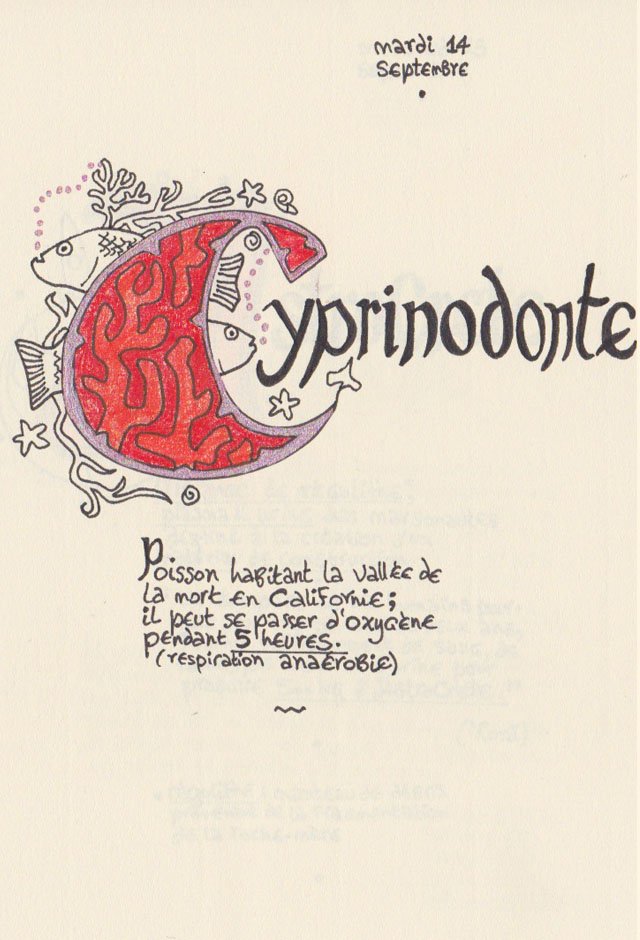 mardi 14
Septembre
Cyprinodonte
Poisson habitant la vallée de
la mort en Californie;
il peut se passer d'oxygène
pendant 5 heures.
(respiration anaérobie)